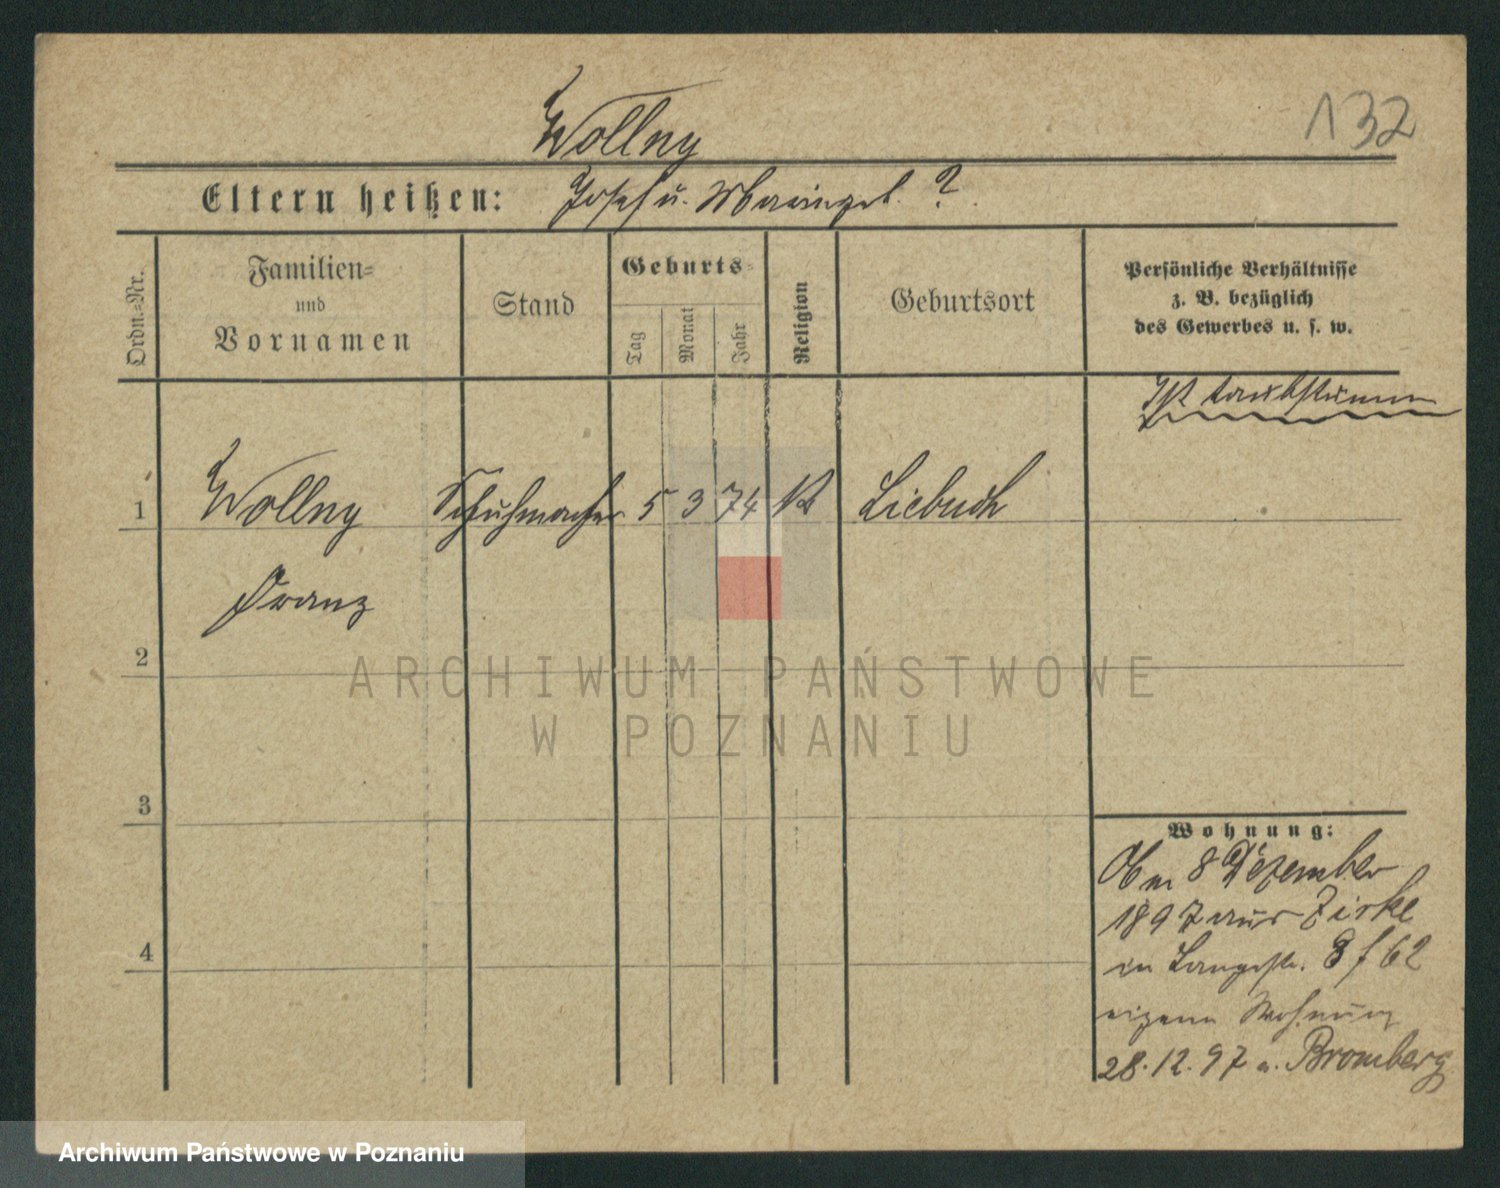 132
Wollny
Eltern heißen: Josef u. ?
Ordn.=Nr.
Familien=
und
Vornamen
Stand
Geburts=
Tag
Monat
Jahr
Religion
Geburtsort
Persönliche Verhältnisse
z. B. bezüglich
des Gewerbes u. s. w.
Ist taubstumm
1 Wollny Schuhmacher 5 3 74 K Liebuch
Franz
2
3
4
Wohnung:
8 Dezember
1897 aus Zirke
in Langestr. 62
eigene Wohnung
28.12.97 n. Bromberg
ARCHIWUM PAŃSTWOWE
W POZNANIU
Archiwum Państwowe w Poznaniu